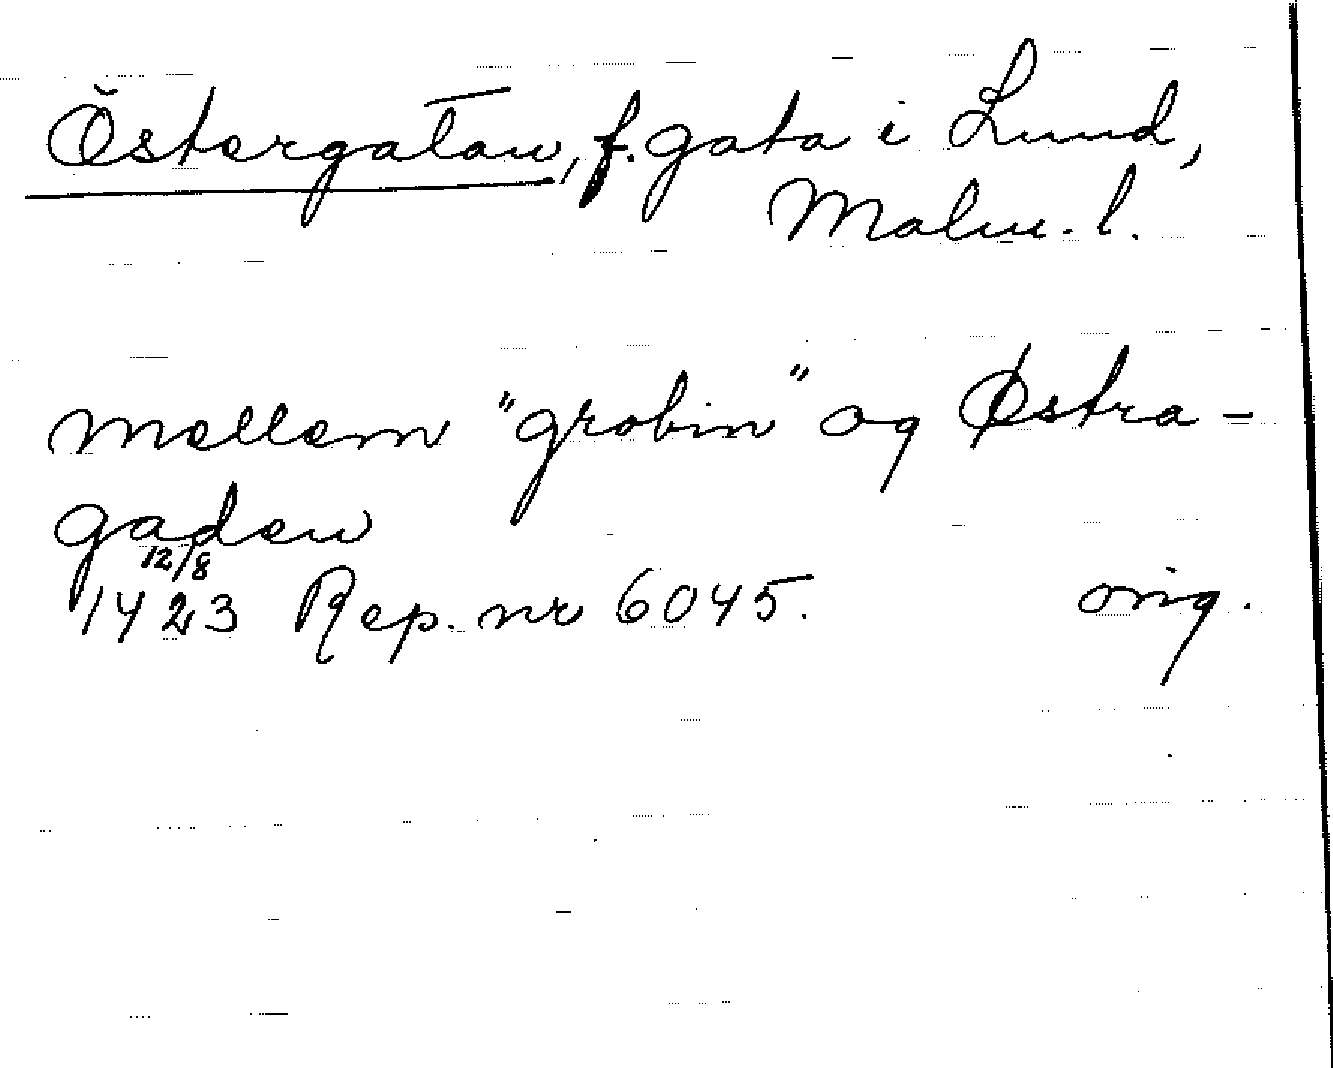 Östergatan, f. gata i Lund,
Malm. l.
mellem "grobin" og Østra-
gaden
12/8
1423 Rep. nr 6045. orig.